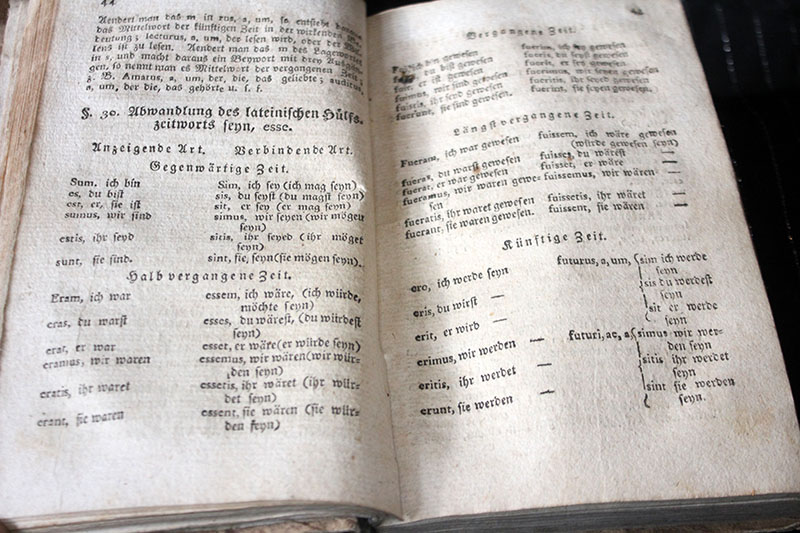 44
Aendert man das m in rus, a, um, so entsteht
das Mittelwort der künftigen Zeit in der wirkenden
deutung; lecturus, a, um, der lesen wird, oder der
lens ist zu lesen. Aendert man das m des Lagewortes
in s, und macht daraus ein Beywort mit drey
gen, so nennt man es Mittelwort der vergangenen Zeit
z. B. Amatus, a, um, der, die, das geliebte; auditus,
a, um, der, die, das gehörte u. s. f.
§. 30. Abwandlung des lateinischen Hülfs-
zeitworts seyn, esse.
Anzeigende Art. Verbindende Art.
Gegenwärtige Zeit.
Sum, ich bin Sim, ich sey (ich mag seyn)
es, du bist sis, du seyst (du magst seyn)
est, er, sie ist sit, er sey (er mag seyn)
sumus, wir sind simus, wir seyen (wir mögen
seyn)
estis, ihr seyd sitis, ihr seyed (ihr möget
seyn)
sunt, sie sind. sint, sie, seyn (sie mögen seyn).
Halb vergangene Zeit.
Eram, ich war essem, ich wäre, (ich würde,
möchte seyn)
eras, du warst esses, du wärest, (du würdest
seyn)
erat, er war esset, er wäre (er würde seyn)
eramus, wir waren essemus, wir wären (wir wür-
den seyn)
eratis, ihr waret essetis, ihr wäret (ihr wür-
det seyn)
erant, sie waren essent, sie wären (sie wür-
den seyn)
Vergangene Zeit.
ich bin gewesen fuerim, ich sey gewesen
du bist gewesen fueris, du seyst gewesen
fuit, er ist gewesen fuerit, er sey gewesen
fuimus, wir sind gewesen fuerimus, wir seyen gewesen
fuistis, ihr seyd gewesen fueritis, ihr seyed gewesen
fuerunt, sie sind gewesen. fuerint, sie seyen gewesen.
Längst vergangene Zeit.
Fueram, ich war gewesen fuissem, ich wäre gewesen
(würde gewesen seyn)
fueras, du warst gewesen fuisses, du wärest —
fuerat, er war gewesen fuisset, er wäre —
fueramus, wir waren gewe- fuissemus, wir wären —
sen
fueratis, ihr waret gewesen fuissetis, ihr wäret —
fuerant, sie waren gewesen. fuissent, sie wären —
Künftige Zeit.
ero, ich werde seyn futurus, a, um, sim ich werde
seyn
eris, du wirst — sis du werdest
seyn
erit, er wird — sit er werde
seyn
erimus, wir werden — futuri, ae, a, simus wir wer-
den seyn
eritis, ihr werdet — sitis ihr werdet
seyn
erunt, sie werden — sint sie werden
seyn.